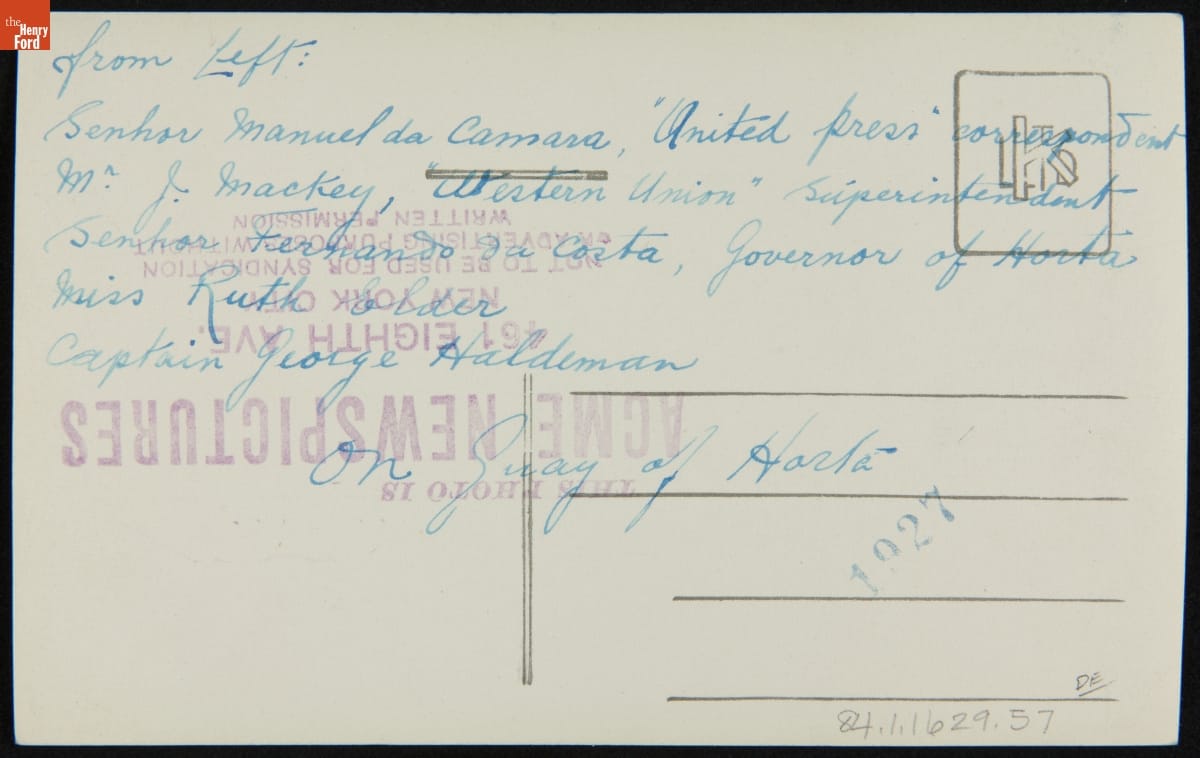 the
Henry
Ford
from Left:
Senhor Manuel da Camara, "United press" correspondent
Mr. J. Mackey, "Western Union" Superintendent
Senhor Fernando da Costa, Governor of Horta
Miss Ruth Elder
Captain George Haldeman
On Quay of Horta
THIS PHOTO IS
ACME NEWSPICTURES
461 EIGHTH AVE.
NEW YORK CITY
NOT TO BE USED FOR SYNDICATION
OR ADVERTISING PURPOSES WITHOUT
WRITTEN PERMISSION
1927
DE
84.1.1629.57